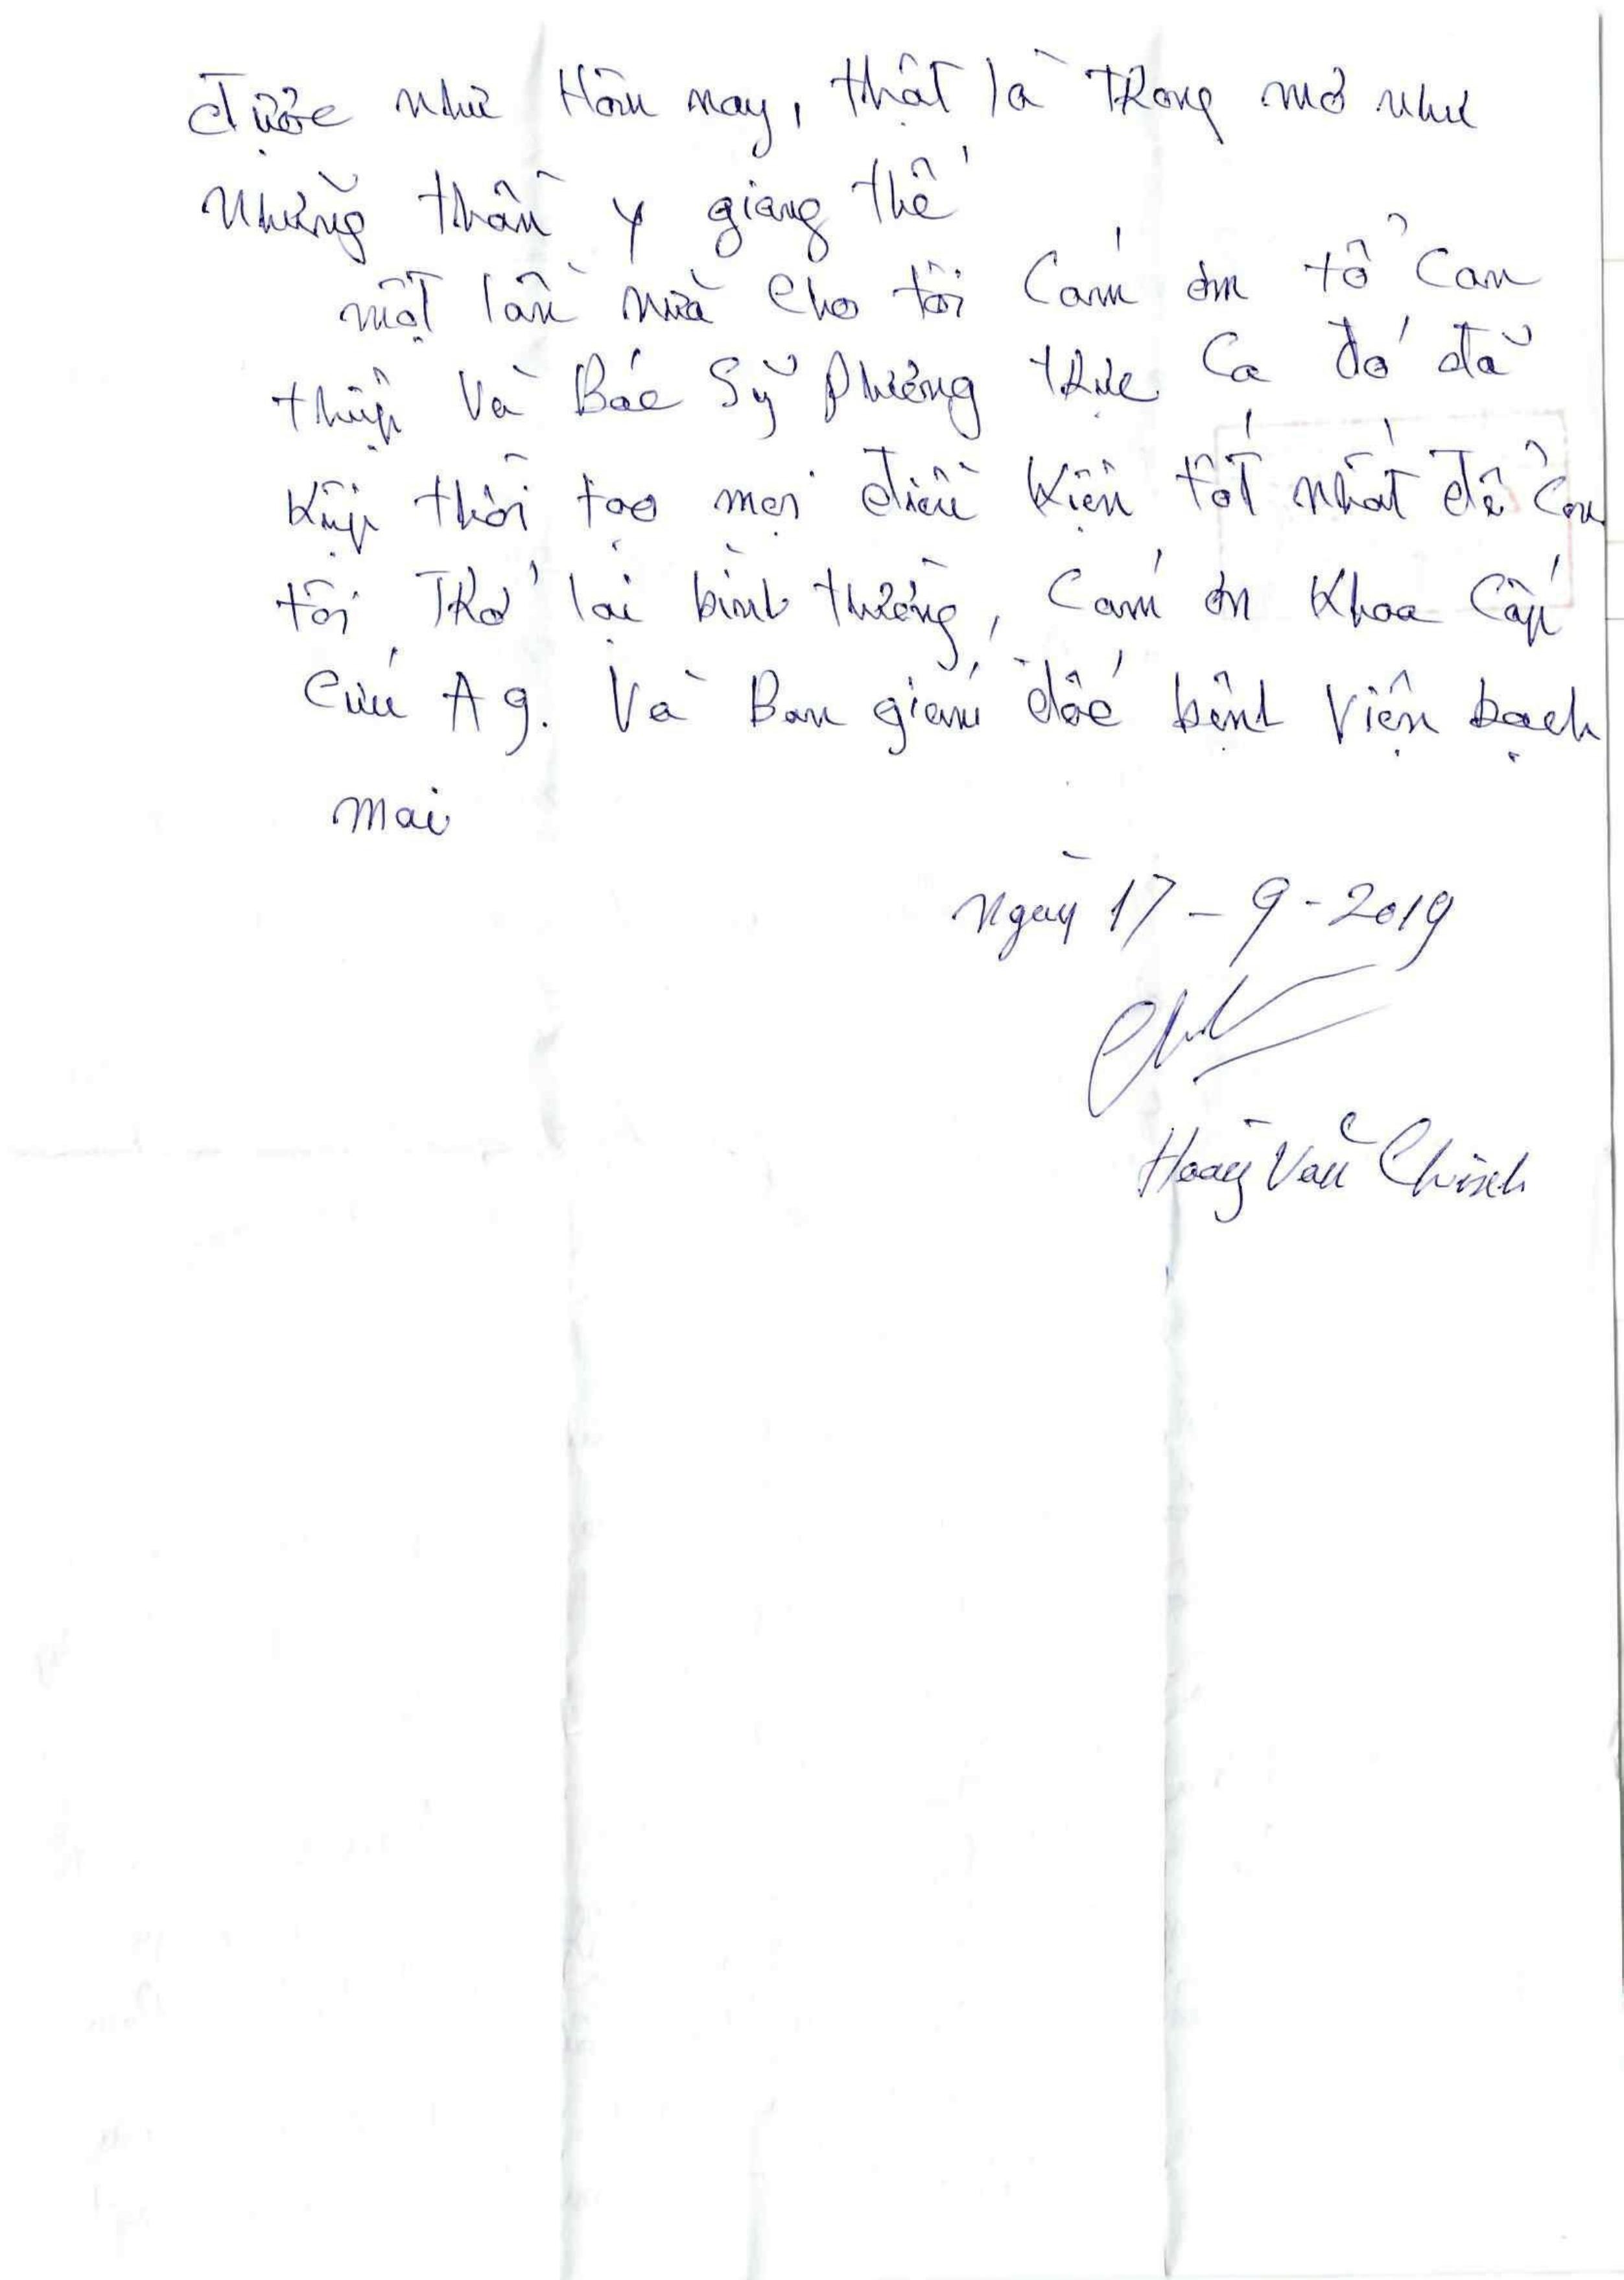 được như Hôm nay, thật là Trong mơ như
những thần y giáng thế
một lần nữa cho tôi Cám ơn tổ Can
thiệp Và Bác Sỹ Phương trực Ca đó đã
Kịp thời tạo mọi điều Kiện tốt nhất để Con
tôi Trở lại bình thường, Cám ơn Khoa Cấp
Cứu A9. Và Ban giám đốc bệnh Viện bạch
mai
Ngày 17-9-2019
Hoàng Văn Chính